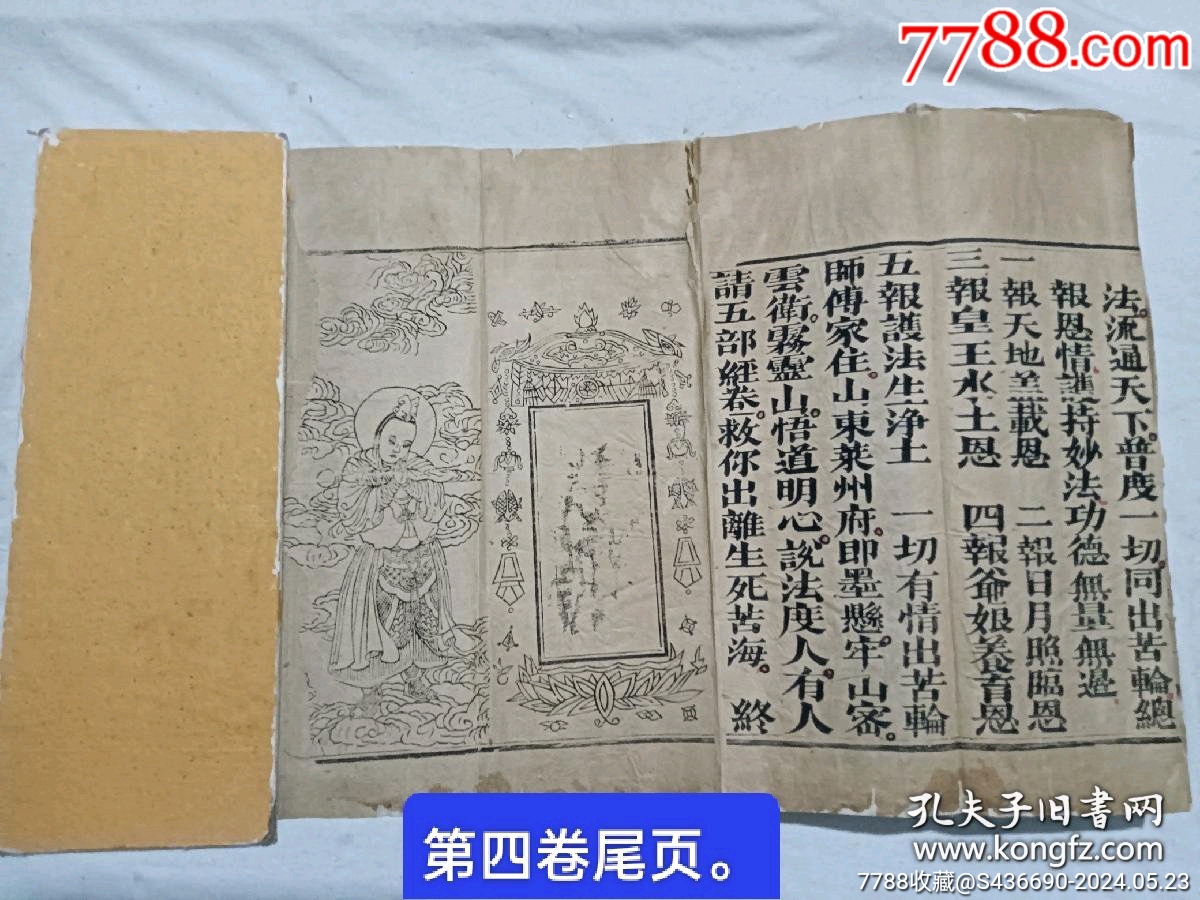 7788.com
法流通天下普度一切同出苦輪總
報恩情護持妙法功德無量無邊
一報天地盖載恩 二報日月照臨恩
三報皇王水土恩 四報爺娘養育恩
五報護法生净土 一切有情出苦輪
師傅家住山東萊州府即墨懸牢山審
雲衛霧靈山悟道明心説法度人有人
請五部經卷救你出離生死苦海 終
第四卷尾页。
孔夫子旧书网
www.kongfz.com
7788收藏@S436690-2024.05.23